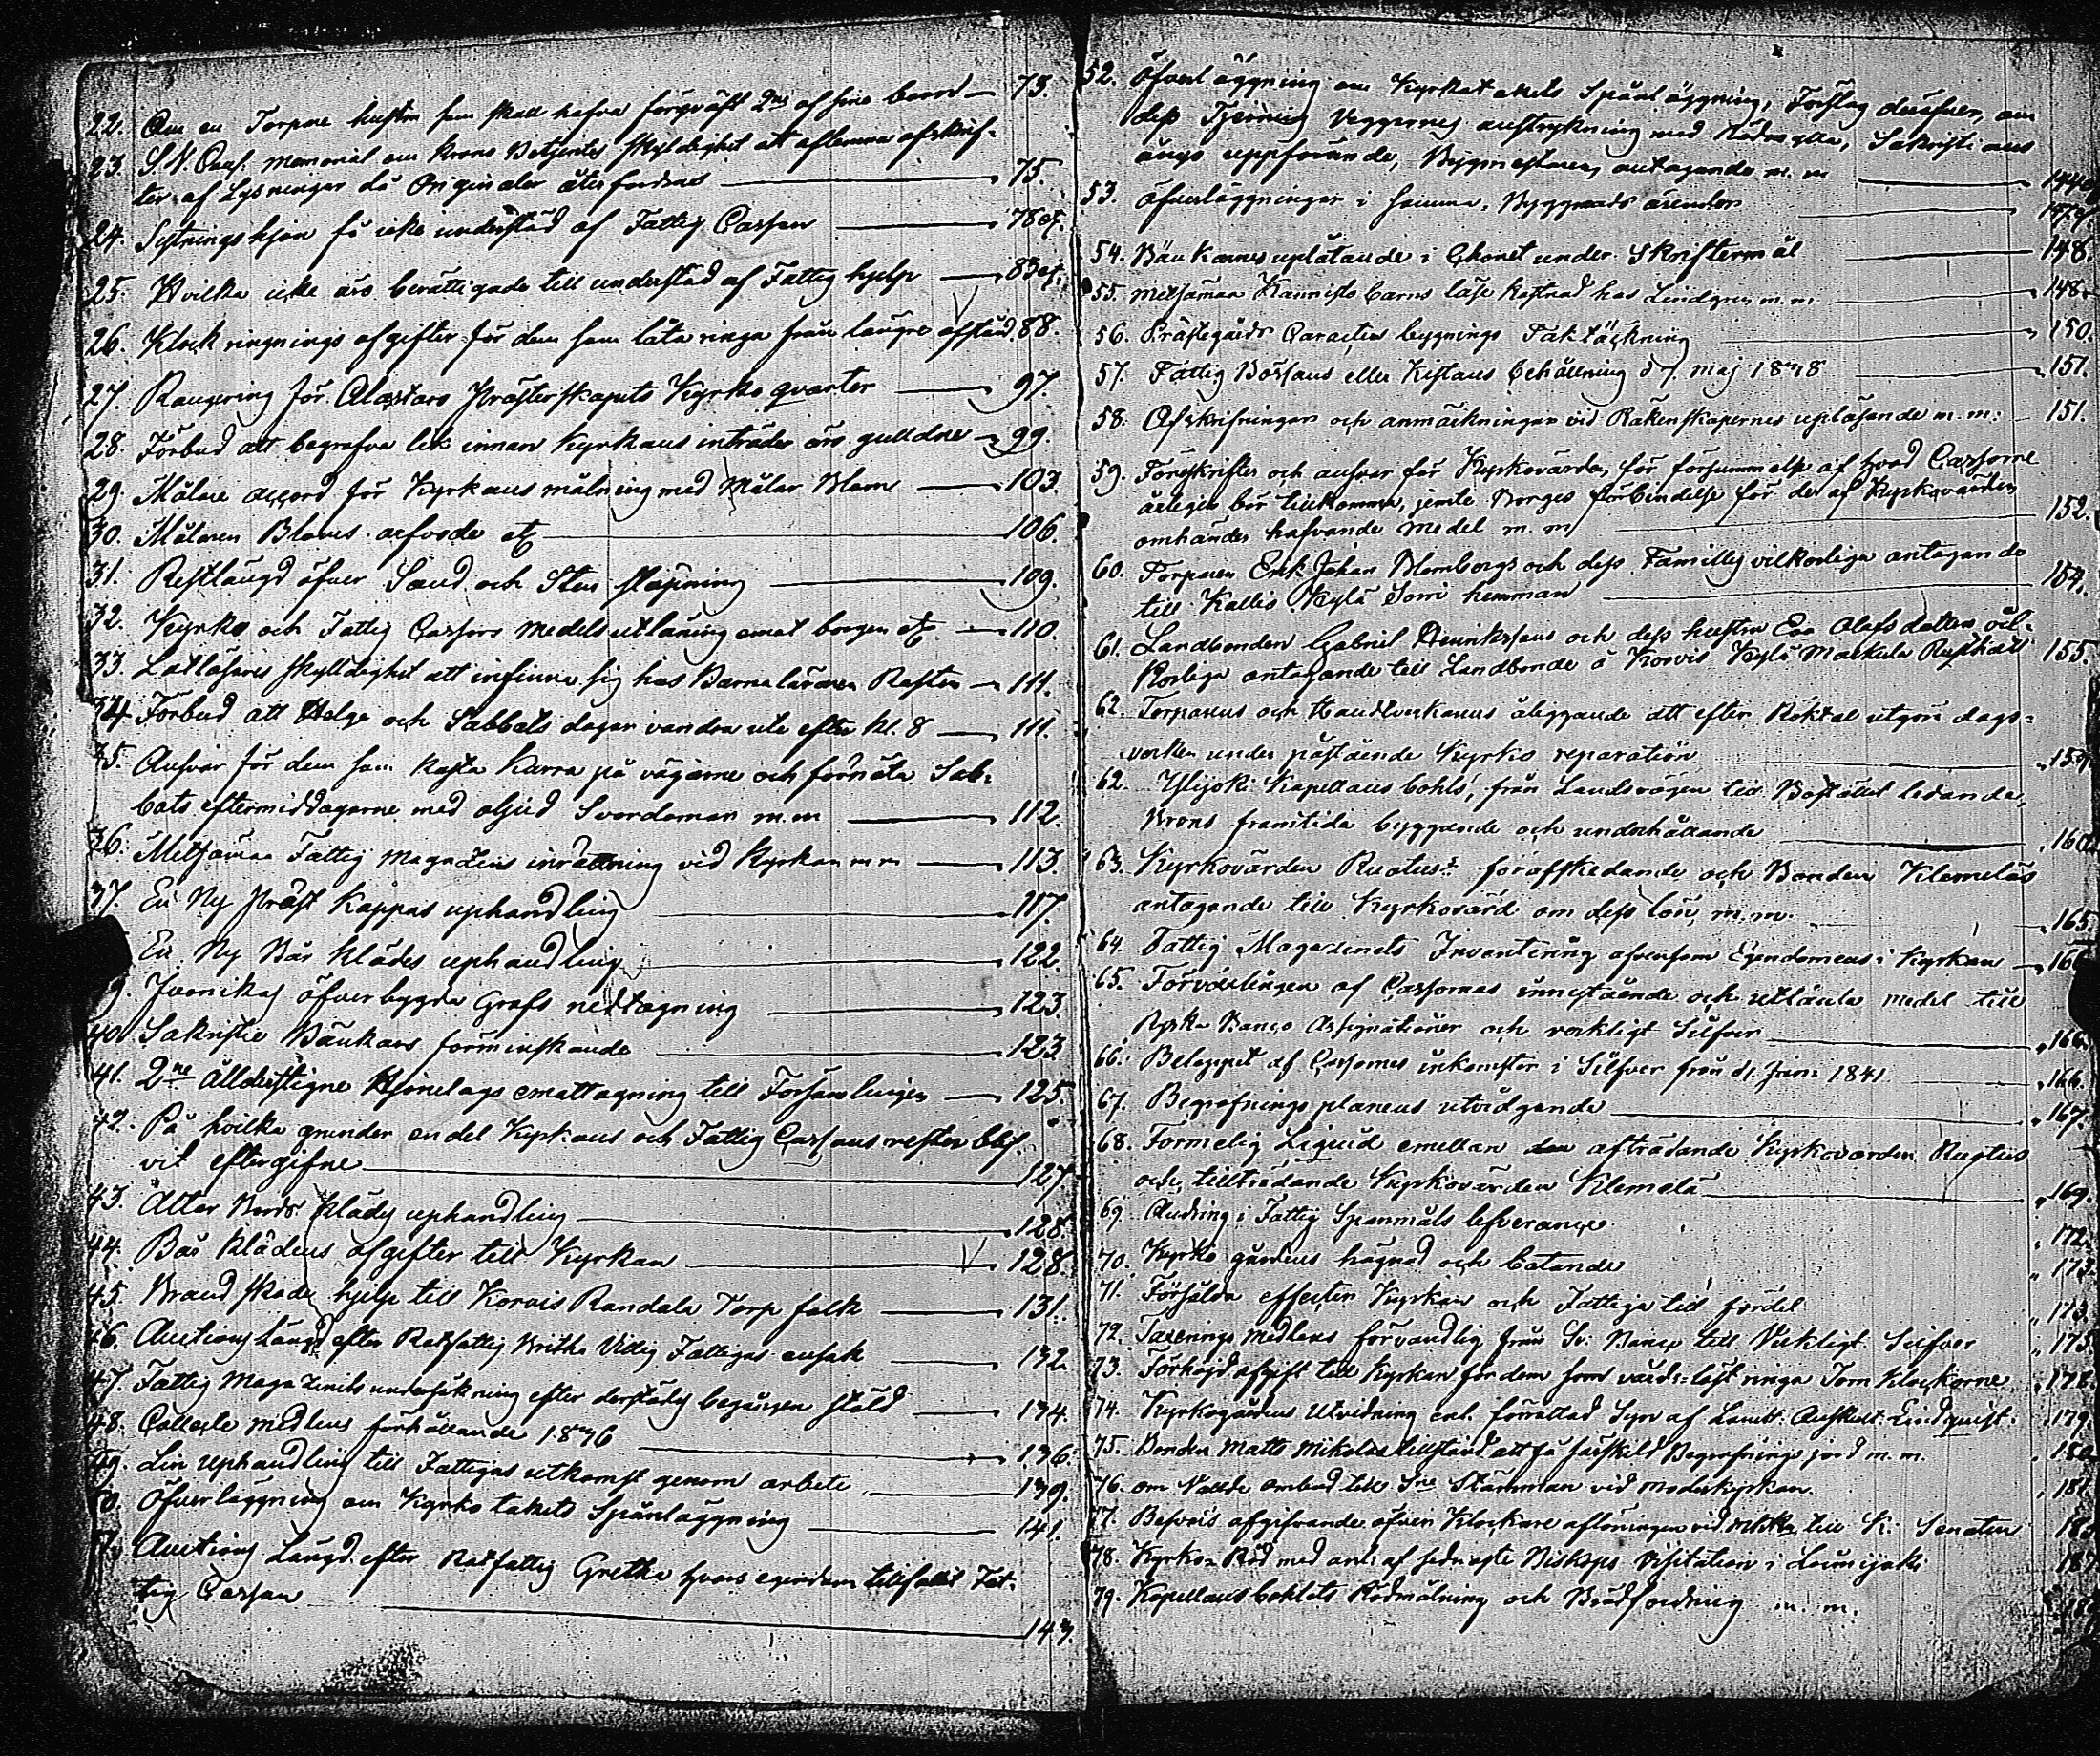 22. Om en Torpare hustru som skall hafva förqväft 2ne af sine barn — 73.
23. S. N. Memorial om Krono Betjentes skyldighet att aflemna afskrif-
ter af Lysningar då Originaler återfordras — 75.
24. Sytningshjon få icke understöd af Fattig Cassan — 78
25. Hvilka icke äro berättigade till understöd af Fattig hjelp — 83
26. Klock ringnings afgifter för dem som låta ringa från längre afstånd. 88.
27. Rangering för Alastaro Prästerskapets Kyrko qvarter — 97.
28. Förbud att begrafva lik innan Kyrkans inträder äro guldne — 99.
29. Målare accord för Kyrkans målning med Målar Blom — 103.
30. Målaren Bloms arfvode etc — 106.
31. Restlängd öfver Sand och Sten släpning — 109.
32. Kyrko och Fattig Cassors medels utlåning emot borgen etc — 110.
33. Lattläsares skylldighet att infinna sig hos Barnaläraren Rasten — 111.
34. Förbud att Helge och Sabbats dagar vandra ute efter kl. 8 — 111.
35. Ansvar för dem som kasta Karra på vägarne och förnöta Sab-
bats eftermiddagarne med oljud Svordomar m.m — 112.
36. Metsämaa Fattig Magazins inrättning vid Kyrkan m m — 113.
37. En Ny Präst Kappas uphandling — 117.
En Ny Bår klädes uphandling — 122.
9. öfverbygda Grafs nedtagning — 123.
40. Sakristie Bänkars förminskande — 123.
41. 2ne Ålderstigne Hjonelags emottagning till Församlingen — 125.
42. På hvilka grunder en del Kyrkans och Fattig Cassans rester blif-
vit eftergifne — 127.
43. Altar Bords Kläds uphandling — 128.
44. Bår Klädens afgifter till Kyrkan — 128.
45. Brand skade hjelp till Korvis Randala Torp folk — 131.
46. Auctions Längd efter Rotfattig Britha Fattigas ensak — 132.
47. Fattig Magazinets undersökning efter derstädes begången stöld — 134.
48. Collecte medlens förhållande 1836 — 136.
49. Lin uphandling till Fattigas utkomst genom arbete — 139.
50. Öfverläggning om Kyrko takets Spånläggning — 141.
Auctions Längd efter Rotfattig Gretha hvars egendom tillfallit Fat-
tig Cassan — 143.
52. Öfverläggning om Kyrkotakets Spånläggning, Förslag deröfver, om
dess Tjerning Väggarnes anstrykning med Rödmylla, Sakristians
ångs uppförande, Byggmästarens antagande m. m — 144
53. Öfverläggningar i samma Byggnads ärender — 147
54. Bänkarnes uplåtande i Choret under Skriftermål — 148.
55. Metsämaa Kannisto barns läse kostnad hos Lindgren m. m. — 148.
56. Prästegårds Caracters bygnings Tak täckning — 150.
57. Fattig Börsans eller Kistans behållning d 7. maj 1838 — 151.
58. Afskrifningar och anmärkningar vid Räkenskapernes upläsande m. m. — 151.
59. Föreskrifter och ansvar för Kyrkovärden, för försummelse af hvad Cassorne
årligen bör tillkomma, jemte Borges förbindelse för de af Kyrkovärden
omhänder hafvande medel m. m — 152.
60. Torparen Erik Johan Blombergs och dess Familles vilkorliga antagande
till Kallis Kylä Sorri hemman — 154.
61. Landbonden Gabriel Henrikssons och dess hustru Eva Olofsdotters vil-
korliga antagande till Landbonde å Korvis Kylä Markula Rusthåll — 155.
62. Torparens och Handtverkarens åliggande att efter Röktal utgöra dags-
verken under påstående Kyrko reparation — 159.
62. Ylijoki Kapellans bohls, från Landsvägen till Bostället ledande,
Brons framtida byggande och underhållande — 160.
63. Kyrkovärden Ruotus förafskedande och Bonden Klemeläs
antagande till Kyrkovärd om dess lön m. m. — 165.
64. Fattig Magazinets Inventering äfvensom Egendomens i Kyrkan — 166
65. Förvexlingen af Cassornas innestående och utlånta medel till
Ryska Banco Assignationer och verkligt Silfver — 166.
66. Beloppet af Cassornes inkomster i Silfver från d 1. Juni 1841 — 166.
67. Begrafnings planens utvidgande — 167.
68. Formelig Liquid emellan den afträdande Kyrkovärden Ruotus
och tillträdande Kyrkovärden Klemelä — 169.
69. Ändring i Fattig Spanmåls lefverance — 172.
70. Kyrko gårdens hägnad och botande — 173.
71. Försålda effecter Kyrkan och Fattiga till fördel — 173.
72. Taxerings medlens förvandling från Sv: Banco till Verkligt Silfver — 173.
73. Förhöjd afgift till Kyrkan för dem som vårds-löst ringa Torn Klockorne — 178.
74. Kyrkogårdens Utvidning enl. förrättad Syn af Landt. Auskult. Lindqvist — 179.
75. Bonden Matts Mikolas tillstånd att få särskild Begrafnings jord m. m. — 180
76. om Valde ombud till Sne Stämman vid Moderkyrkan — 181.
77. Besvärs afgifvande öfver Klockare aflöningen vid till K. Senaten — 183
78. Kyrko Råd med anl: af sednaste Biskops Visitation i Loimijoki — 18
79. Kapellans bohlets Rödmålning och Brädfordring m. m. — 18